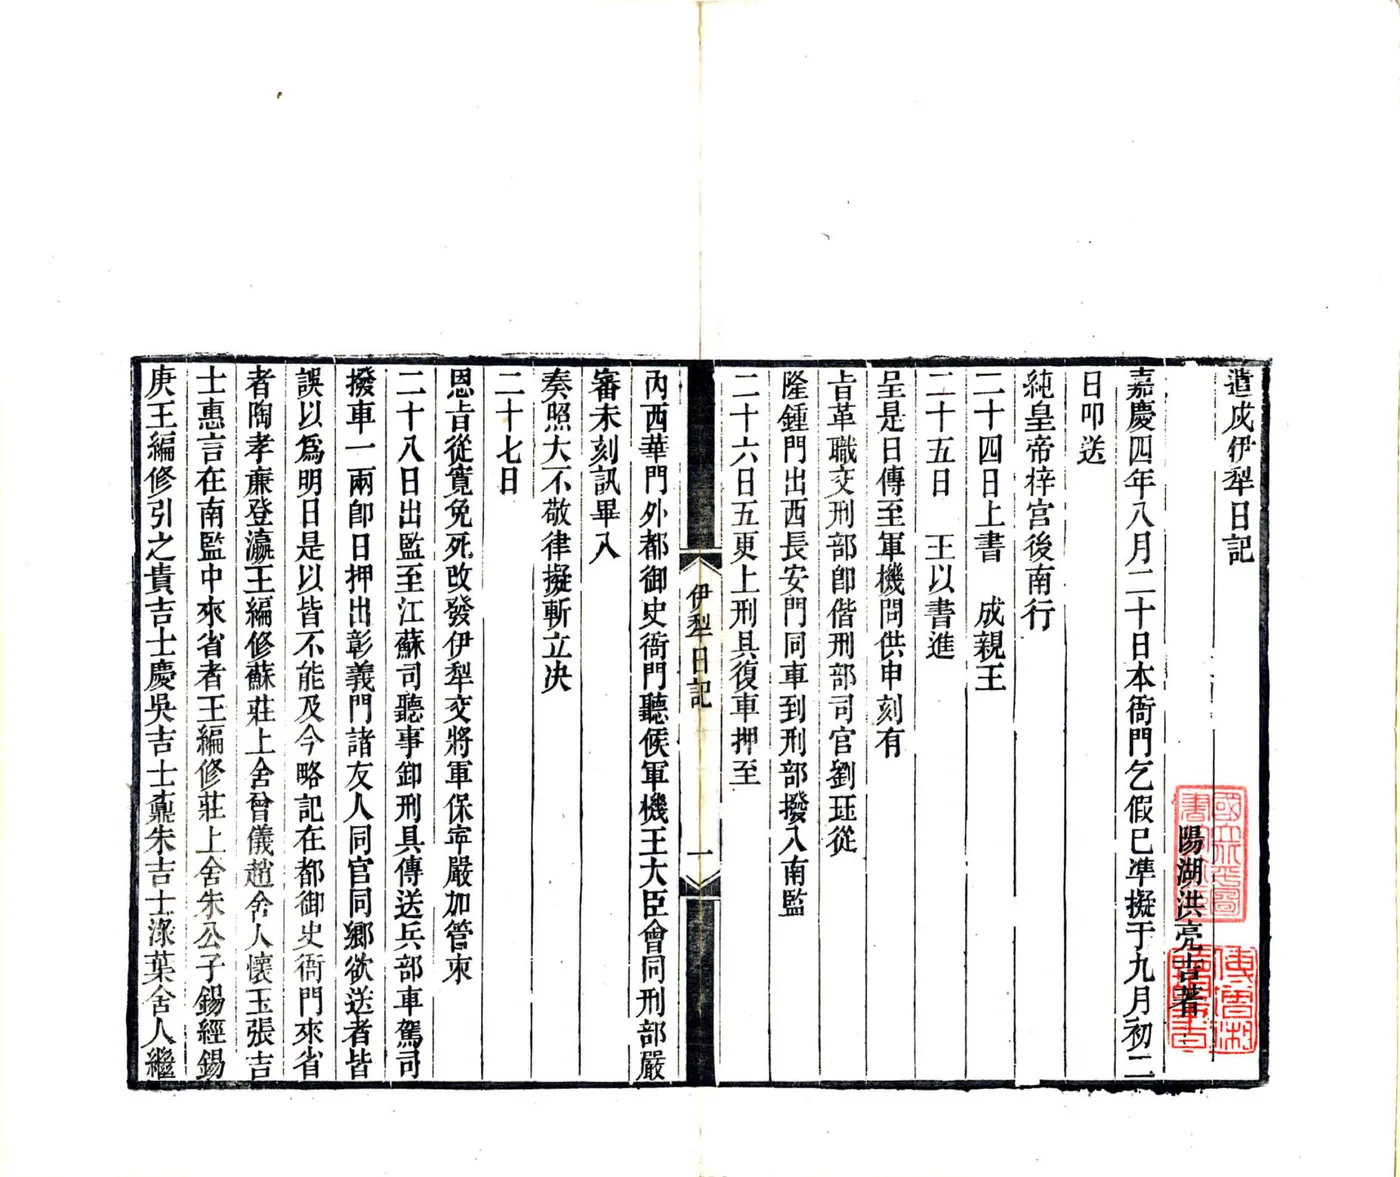 遣戍伊犁日記
陽湖洪亮吉著
嘉慶四年八月二十日本衙門乞假已準擬于九月初二
日叩送
純皇帝梓宮後南行
二十四日上書　成親王
二十五日　王以書進
呈是日傳至軍機問供申刻有
旨革職交刑部卽偕刑部司官劉珏從
隆鍾門出西長安門同車到刑部撥入南監
二十六日五更上刑具復車押至
伊犁日記
一
內西華門外都御史衙門聽候軍機王大臣會同刑部嚴
審未刻訊畢入
奏照大不敬律擬斬立决
二十七日
恩旨從寬免死改發伊犁交將軍保寧嚴加管束
二十八日出監至江蘇司聽事卸刑具傳送兵部車駕司
撥車一兩卽日押出彰義門諸友人同官同鄉欲送者皆
誤以爲明日是以皆不能及今略記在都御史衙門來省
者陶孝廉登瀛王編修蘇莊上舍曾儀趙舍人懷玉張吉
士惠言在南監中來省者王編修莊上舍朱公子錫經錫
庚王編修引之貴吉士慶吳吉士鼒朱吉士淥葉舍人繼